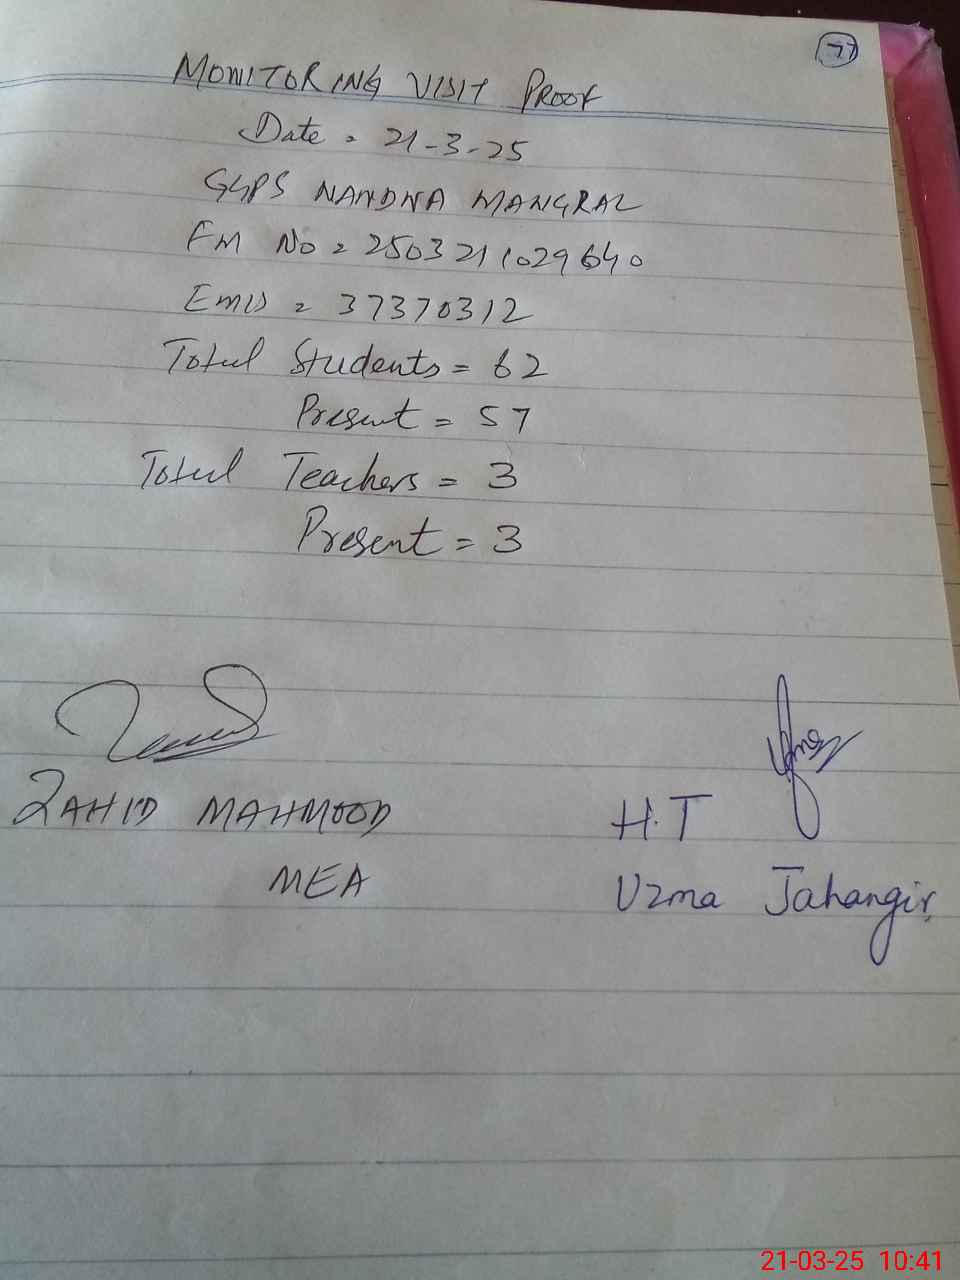 77
MONITORING VISIT PROOF
Date = 21-3-25
GGPS NANDNA MANGRAL
FM No = 2503211029640
Emis = 37370312
Total Students = 62
Present = 57
Total Teachers = 3
Present = 3
ZAHID MAHMOOD
MEA
H.T
Uzma Jahangir
21-03-25 10:41